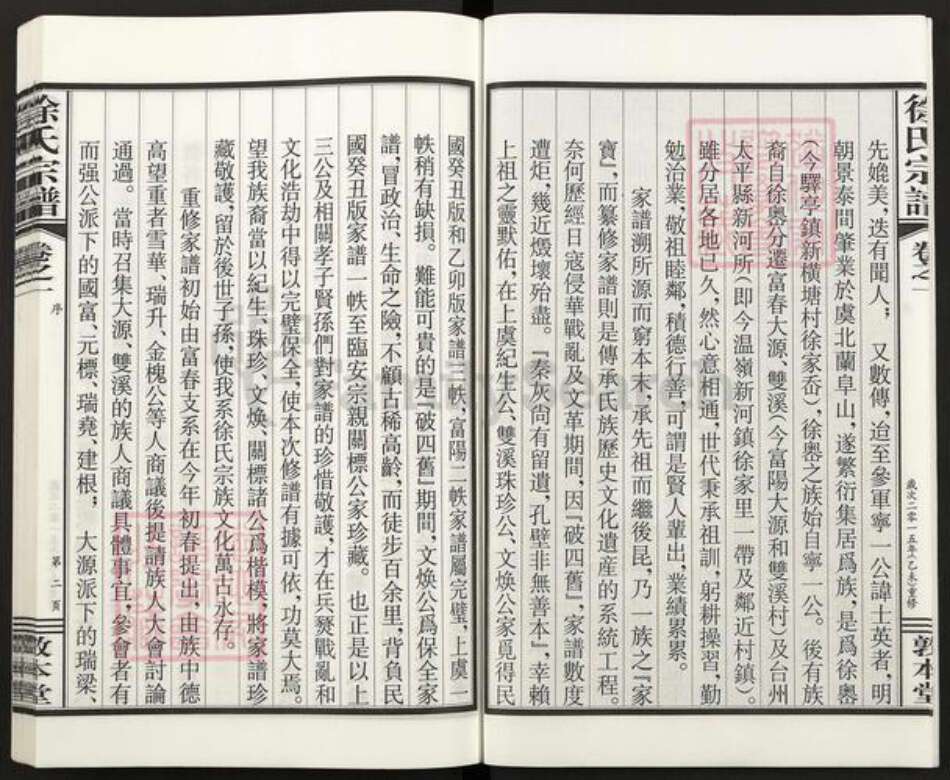 徐氏宗譜
卷之一
歲次二零一五年(乙未)重修
敦本堂
先媲美,迭有聞人; 又數傳,迨至參軍寧一公諱士英者,明
朝景泰間肇業於虞北蘭阜山,遂繁衍集居爲族,是爲徐嶴
(今驛亭鎮新横塘村徐家岙),徐嶴之族始自寧一公。 後有族
裔自徐奧分遷富春大源、雙溪(今富陽大源和雙溪村)及台州
太平縣新河所(即今温嶺新河鎮徐家里一帶及鄰近村鎮)。
雖分居各地已久,然心意相通,世代秉承祖訓,躬耕操習,勤
勉治業,敬祖睦鄰,積德行善,可謂是賢人輩出,業績累累。
家譜溯所源而窮本末,承先祖而繼後昆,乃一族之『家
寶』,而纂修家譜則是傳承氏族歷史文化遺産的系統工程。
奈何歷經日寇侵華戰亂及文革期間,因『破四舊』,家譜數度
遭炬,幾近燬壞殆盡。『秦灰尚有留遺,孔壁非無善本』,幸賴
上祖之靈默佑,在上虞紀生公、雙溪珠珍公、文焕公家覓得民
國癸丑版和乙卯版家譜三帙,富陽二帙家譜屬完璧,上虞一
帙稍有缺損。 難能可貴的是『破四舊』期間,文焕公爲保全家
譜,冒政治、生命之險,不顧古稀高齡,而徒步百余里,背負民
國癸丑版家譜一帙至臨安宗親關標公家珍藏。 也正是以上
三公及相關孝子賢孫們對家譜的珍惜敬護,才在兵燹戰亂和
文化浩劫中得以完璧保全,使本次修譜有據可依,功莫大焉。
望我族裔當以紀生、珠珍、文焕、關標諸公爲楷模,將家譜珍
藏敬護,留於後世子孫,使我系徐氏宗族文化萬古永存。
重修家譜初始由富春支系在今年初春提出,由族中德
高望重者雪華、瑞升、金槐公等人商議後提請族人大會討論
通過。 當時召集大源、雙溪的族人商議具體事宜,參會者有
而强公派下的國富、元標、瑞堯、建根; 大源派下的瑞梁、
徐氏宗譜
卷之一
序
第二頁
敦本堂